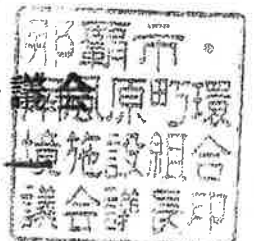 那覇市・
南風原町環
境施設組合
議会議長印
議会